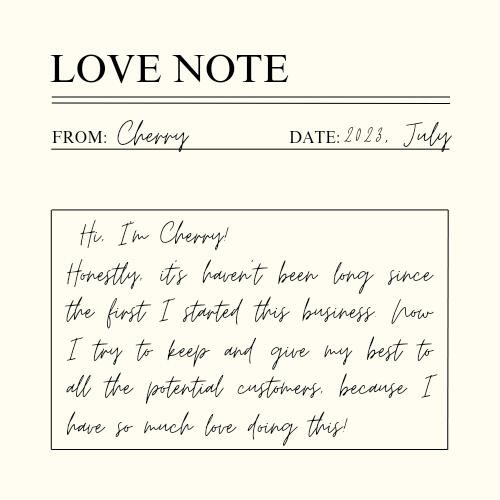 LOVE NOTE
FROM: Cherry DATE: 2023, July
Hi, I'm Cherry!
Honestly, it's haven't been long since
the first I started this business. Now
I try to keep and give my best to
all the potential customers, because I
have so much love doing this!